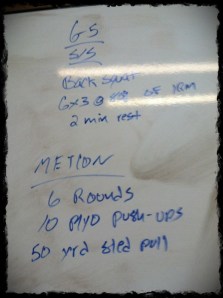 GS
S/S
Back Squat
6x3 @ 85% OF 1RM
2 min rest
METCON
6 Rounds
10 PLYO push-ups
50 yrd sled pull